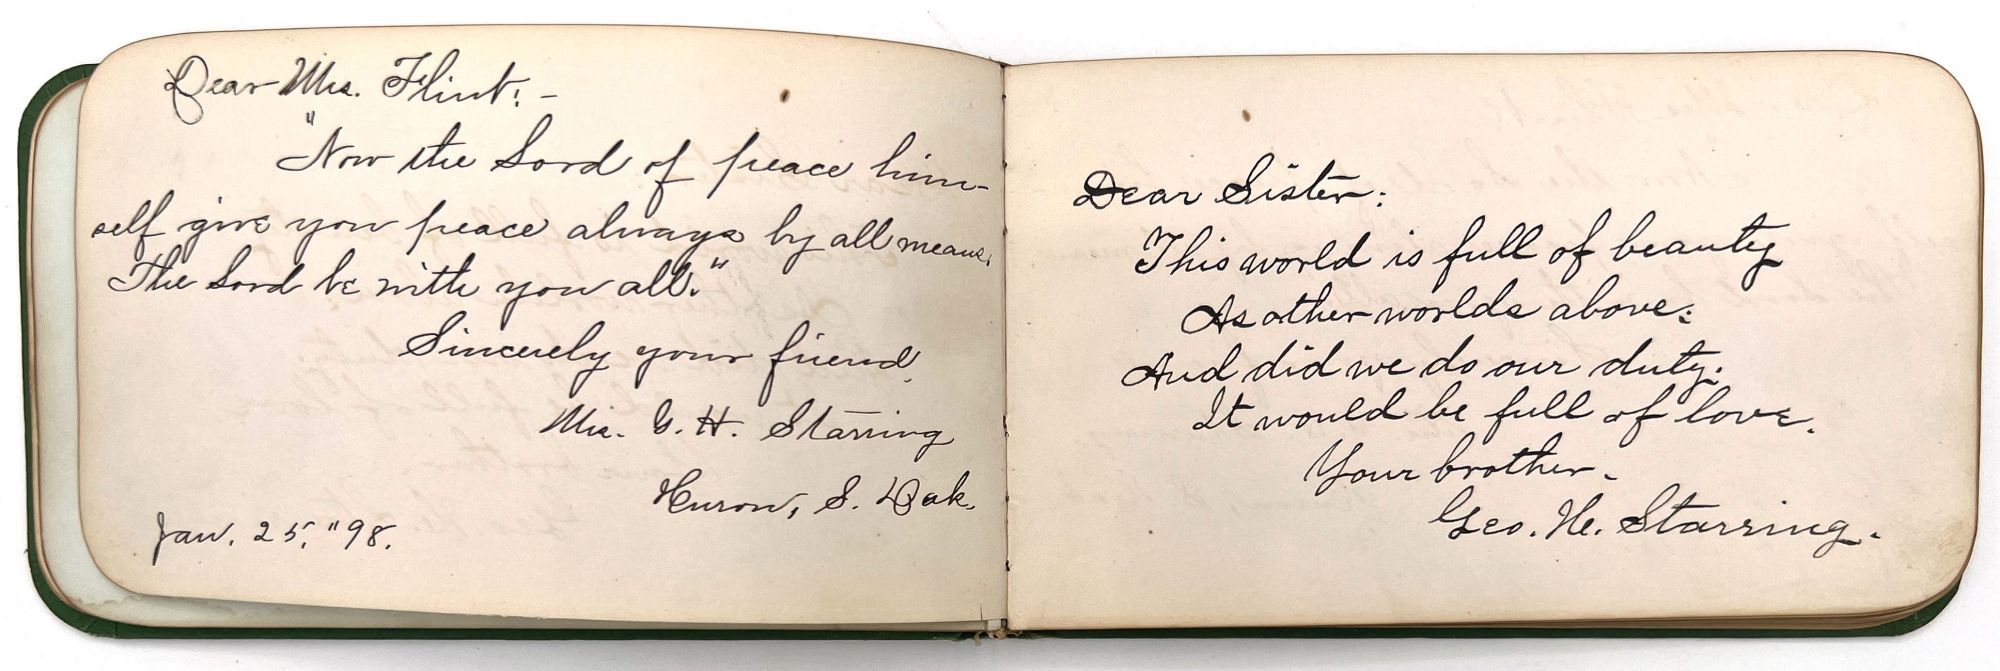 Dear Mrs. Flint: -
"Now the Lord of peace him-
self give you peace always by all means.
The Lord be with you all."
Sincerely your friend,
Mrs. G. H. Starring
Huron, S. Dak.
Jan. 25, "98.
Dear Sister:
This world is full of beauty
As other worlds above;
And did we do our duty.
It would be full of love.
Your brother.
Geo. H. Starring.